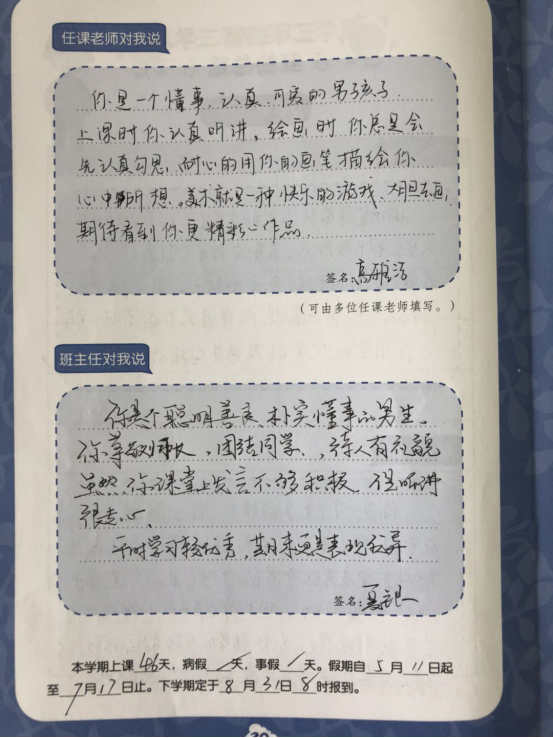 任课老师对我说
你是一个懂事、认真、可爱的男孩子.
上课时你认真听讲。绘画时你总是会
先认真勾思,耐心的用你的画笔描绘你
心中所想。美术就是一种快乐的游戏、大胆去画,
期待看到你更精彩的作品.
签名:
(可由多位任课老师填写。)
班主任对我说
你是个聪明善良、朴实懂事的男生。
你尊敬师长,团结同学,待人有礼貌
虽然你课堂上发言不够积极,但听讲
很专心、
平时学习较优秀,期末更是表现优异.
签名:
本学期上课 46 天,病假 / 天,事假 / 天。假期自 5 月 11 日起
至 7 月 17 日止。下学期定于 8 月 31 日 8 时报到。